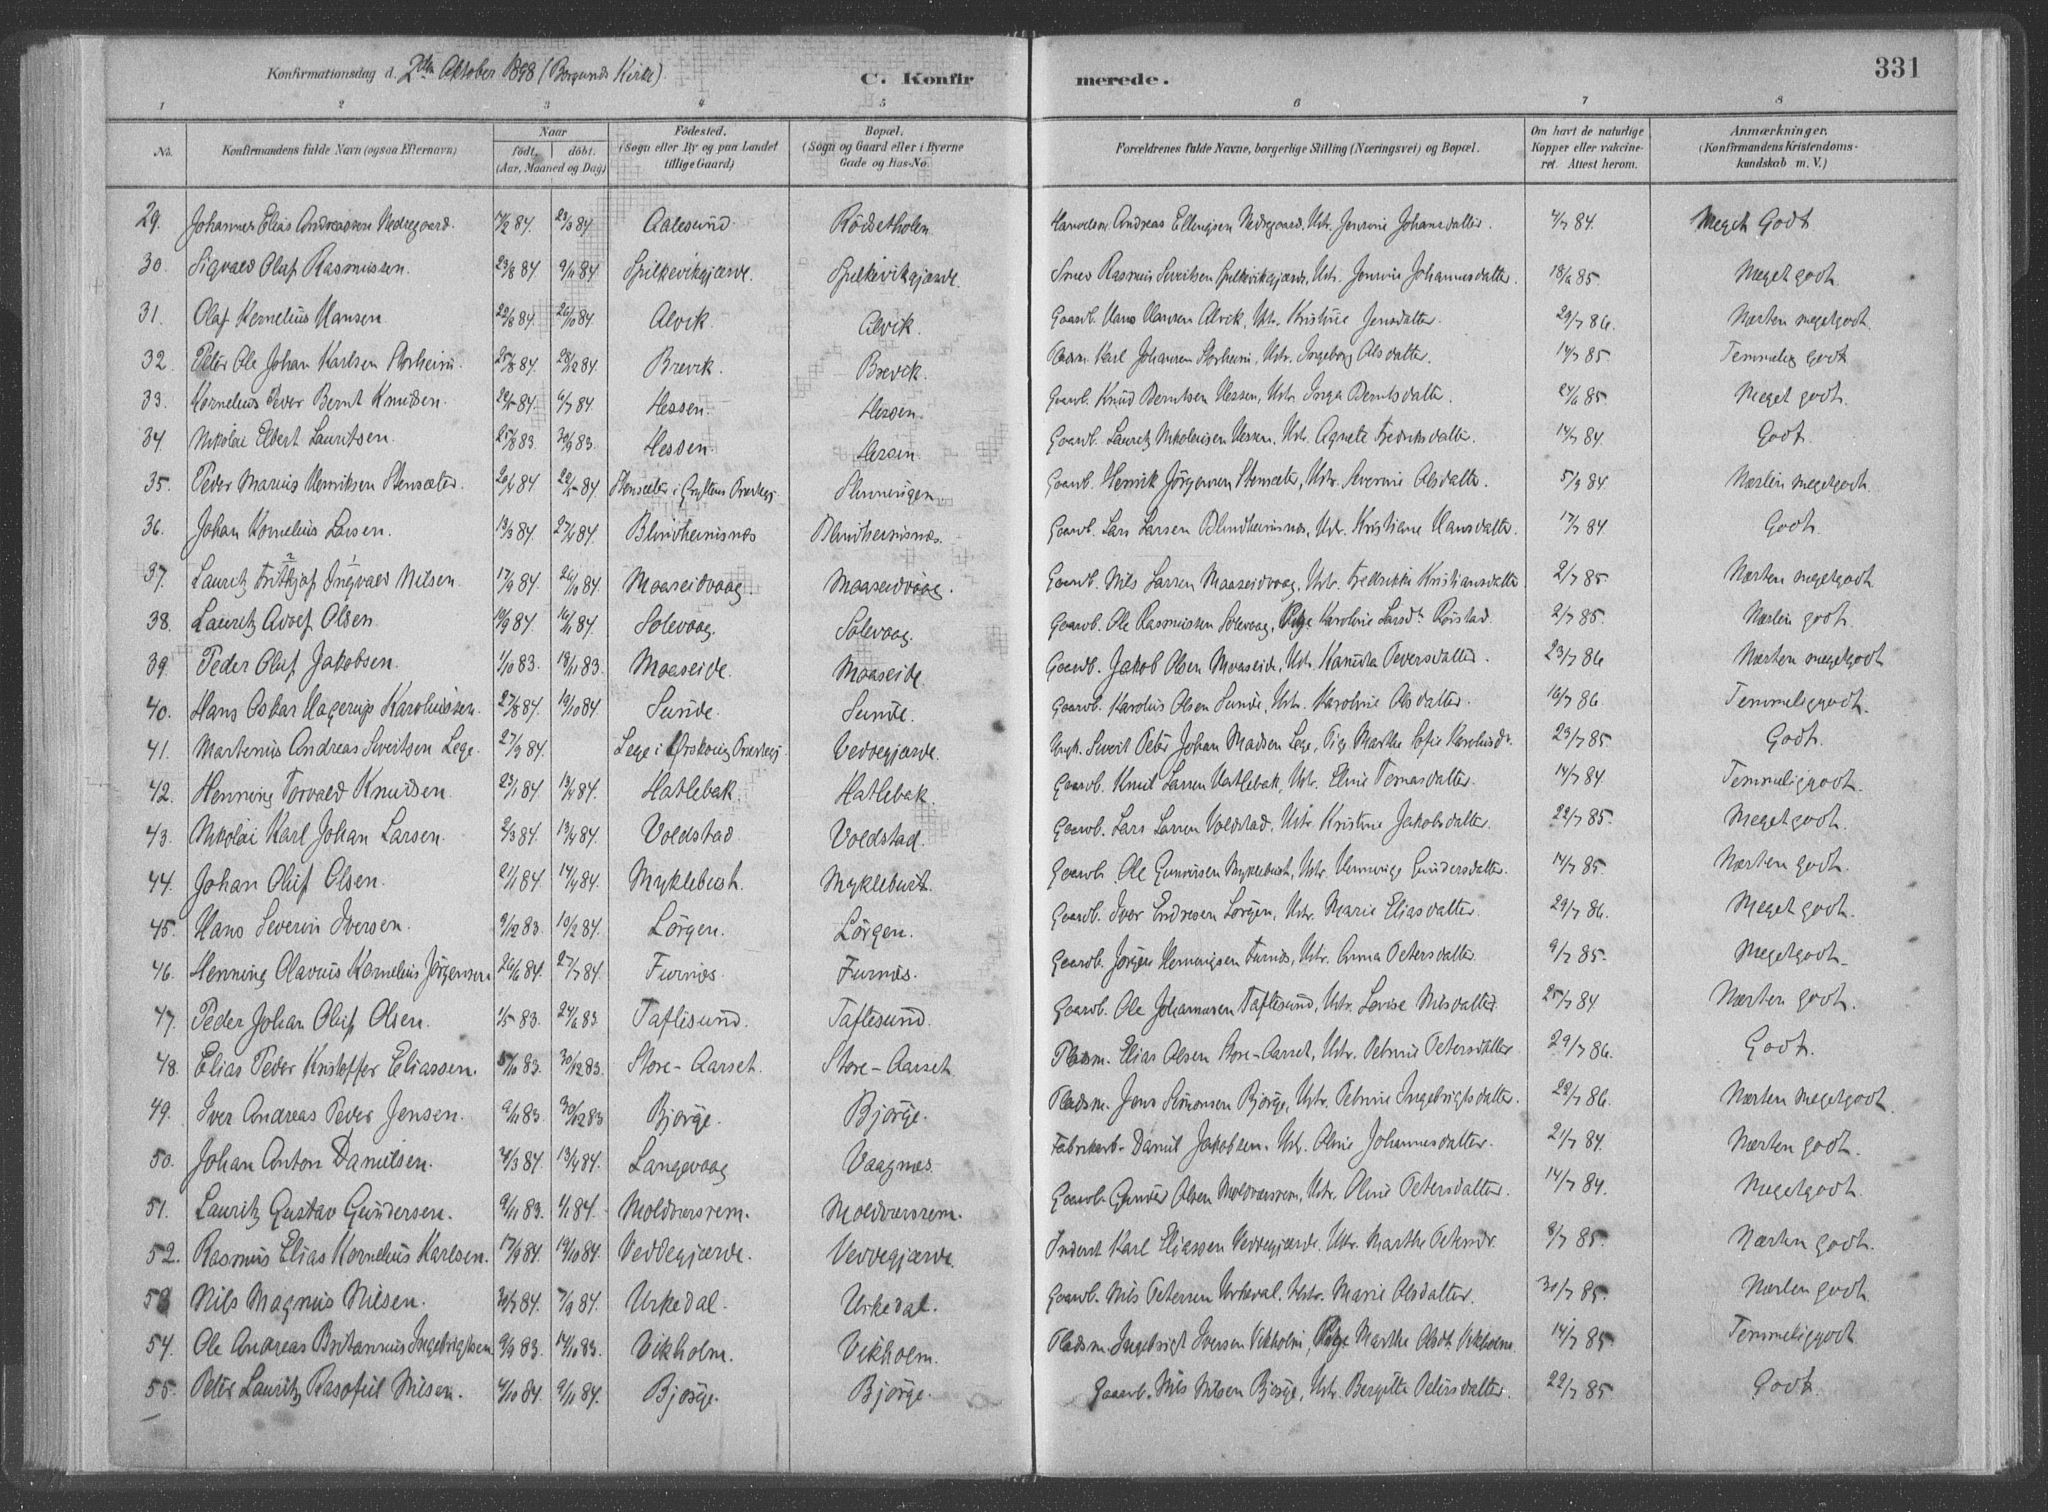 Konfirmationsdag d. 2den Oktober 1898 (Borgunds Kirke). C. Konfirmerede. 331
1 2 3 4 5 6 7 8
No. Konfirmandens fulde Navn (ogsaa Efternavn) Naar født, døbt. (Aar, Maaned og Dag) Födested. (Sogn eller By og paa Landet tillige Gaard) Bopæl. (Sogn og Gaard eller i Byerne Gade og Hus-No. Forældrenes fulde Navne, borgerlige Stilling (Næringsvei) og Bopæl. Om havt de naturlige Kopper eller vakcineret. Attest herom. Anmærkninger. (Konfirmandens Kristendomskundskab m. V.)
29. Johannes Elias Andreassen Nedregaard. 84 23/3 84 Aalesund Rödsetholen Andreas Ellingsen Nedregaard, Ustr. Jensine Johansdatter. 84. Meget Godt
30. Sigvald Oluf Rasmussen. 23/8 84. 9/11 84. Spilkevikgjærde. Spilkevikgjærde. Rasmus Sivertsen Spilkevikgjærde, Ustr. Jensine Johannesdatter. 85. Meget godt.
31. Olaf Kornelius Hansen 22/8 84. 26/10 84. Alvik Alvik. Gaardb. Hans Hansen Alvik, Ustr. Kristine Jensdatter. 29/7 86. Næsten megetgodt.
32. Peter Ole Johan Karlsen Storheim. 25/8 84. 28/12 84. Brevik. Brevik. Pladsm. Karl Johansen Storheim, Ustr. Ingeborg Olsdatter. 14/7 85. Temmelig godt
33. Kornelius Peder Bernt Knudsen. 84. 6/7 84. Hessen. Hessen. Gaardb. Knud Berntsen Hessen, Ustr. Inga Berntsdatter. 85 Meget godt.
34. Nikolai Elbert Lauritsen. 25/8 83 30/9 83. Hessen. Hessen. Gaardb. Lauritz Nikolaisen Hessen, Ustr. Agnete Fredriksdatter. 14/7 84. Godt.
35. Peder Marius Henriksen Stensæter. 84. 22/5 84 Stensæter i Gryttens Præstegj. Slinningen. Gaardb. Henrik Jörgensen Stensæter, Ustr. Severine Olsdatter. 5/9 84 Næsten megetgodt.
36. Johan Kornelius Larsen. 13/3 84. 27/4 84. Blindheimsnæs Blindheimsnæs. Gaardb. Lars Larsen Blindheimsnæs, Ustr. Kristiane Hansdatter. 17/7 84 Godt.
37. Lauritz Frithjof Ingvald Nilsen. 17/9 84. 26/10 84. Maaseidvaag. Maaseidvaag. Gaardb. Nils Larsen Maaseidvaag, Ustr. Fredrikke Kristiansdatter 2/7 85. Næsten megetgodt.
38. Lauritz Adolf Olsen 10/9 84. 16/11 84. Solevaag. Solevaag. Gaardb. Ole Rasmussen Solevaag, Pige Karoline Larsdr. Röistad. 2/7 85. Næsten godt.
39. Peder Oluf Jakobsen. 1/10 83. 18/11 83. Maaseide. Maaseide. Gaardb. Jakob Olsen Maaseide, Ustr. Kanuta Pedersdatter. 23/7 86 Næsten megetgodt
40. Hans Oskar Hagerup Karoliussen. 27/8 84. 19/10 84. Sunde. Sunde. Gaardb. Karolius Olsen Sunde, Ustr. Karoline Olsdatter. 16/7 86 Temmeliggodt.
41. Martenius Andreas Sivertsen Lege. 27/9 84. Lege i Ørskoug Præstegj. Veddegjærde. Ungk. Sivert Peter Johan Madsen Lege, Pige Marthe Sofie Karolusdr. 23/7 85 Godt.
42. Henning Torvald Knudsen. 23/1 84. 13/4 84. Hatlebak. Hatlebak. Gaardb. Knut Larsen Hatlebak, Ustr. Eline Tomasdatter. 14/7 84 Temmeliggodt.
43. Nikolai Karl Johan Larsen. 2/3 84. 13/4 84. Voldstad. Voldstad. Gaardb. Lars Larsen Voldstad, Ustr. Kristine Jakobsdatter. 22/7 85. Megetgodt.
44. Johan Oluf Olsen. 84. 14/4 84. Myklebust. Myklebust. Gaardb. Ole Myklebust, Ustr. Gundersdatter. 14/7 85. Næsten godt.
45. Hans Severin Iversen. 9/12 83. 10/2 84. Lörgen. Lörgen. Gaardb. Iver Endresen Lörgen, Ustr. Marie Eliasdatter. 29/7 86. Megetgodt.
46. Henning Olavus Kornelius Jörgensen 26/6 84. 27/7 84. Furnæs. Furnæs. Gaardb. Jörgen Henningsen Furnæs, Ustr. Anna Petersdatter. 9/7 85. Megetgodt.
47. Peder Johan Oluf Olsen. 1/5 83. 24/6 83 Taftesund. Taftesund. Gaardb. Ole Johannesen Taftesund, Ustr. Lovise Nilsdatter 25/7 84 Næsten godt.
48. Elias Peder Kristoffer Eliassen. 5/10 83. 30/12 83. Store-Aarset. Store-Aarset. Pladsm. Elias Olsen Store-Aarset, Ustr. Petrine Petersdatter 29/7 86. Godt.
49. Iver Andreas Peder Jensen. 9/11 83. 30/12 83 Bjørge. Bjørge. Pladsm. Jens Simonsen Bjørge, Ustr. Petrine Ingebrigtsdatter. 22/7 86. Næsten megetgodt.
50. Johan Anton Danielsen. 84. 13/4 84. Langevaag Vaagnæs. Fabrikarb. Daniel Jakobsen. Ustr. Oline Johannesdatter. 21/7 84. Næsten godt.
51. Lauritz Gustav Gundersen. 9/11 83. 1/1 84. Moldværsrem. Moldværsrem. Gaardb. Gunder Olsen Moldværsrem, Ustr. Oline Petersdatter. 14/7 84. Megetgodt.
52. Rasmus Elias Kornelius Karlsen. 17/9 84. 19/10 84. Veddegjærde. Veddegjærde. Inderst Karl Eliassen Veddegjærde, Ustr. Marthe Petersdr. 8/7 85. Næsten godt.
53 Nils Magnus Nilsen. 30/7 84. 7/9 84. Urkedal. Urkedal. Gaardb. Nils Petersen Urkedal. Ustr. Marie Olsdatter. 30/7 85. Næsten godt.
54. Ole Andreas Britannus Ingebrigtsen 9/9 83. 14/10 83. Vikholm. Vikholm. Pladsm. Ingebrigt Iversen Vikholm, Pige Marthe Olsdt. Vikholm. 14/7 85. Temmeliggodt
55. Peter Lauritz Nilsen. 4/10 84. 9/11 84. Bjørge. Bjørge. Gaardb. Nils Nilsen Bjørge, Ustr. Bergitte Petersdatter. 22/7 85. Godt.